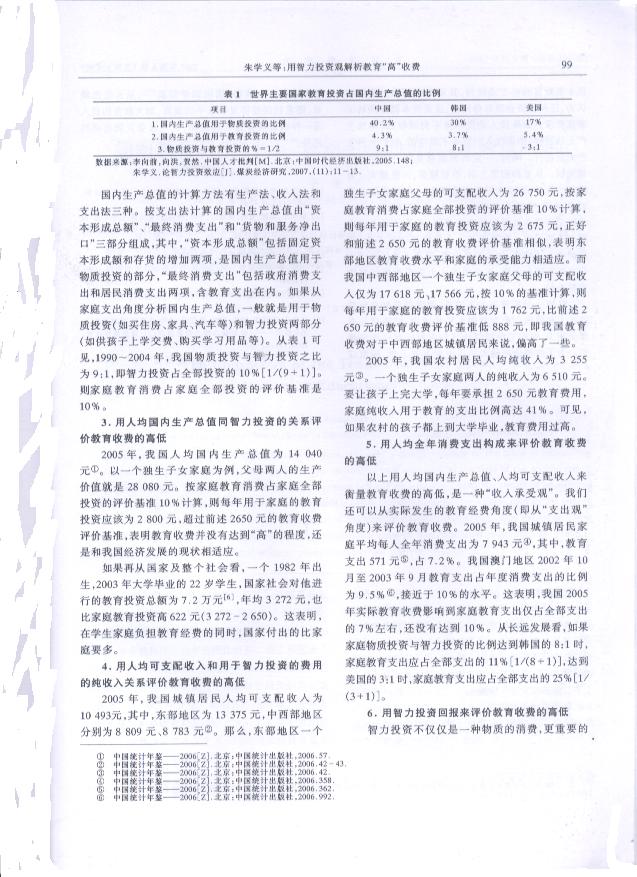 朱学义等:用智力投资观解析教育“高”收费
99
表1 世界主要国家教育投资占国内生产总值的比例
项目 中国 韩国 美国
1.国内生产总值用于物质投资的比例 40.2% 30% 17%
2.国内生产总值用于教育投资的比例 4.3% 3.7% 5.4%
3.物质投资与教育投资的%=1/2 9:1 8:1 3:1
数据来源:李向前,向洪,贺然.中国人才批判[M].北京:中国时代经济出版社,2005.148;
朱学义.论智力投资效应[J].煤炭经济研究,2007,(11):11-13.
国内生产总值的计算方法有生产法、收入法和
支出法三种。按支出法计算的国内生产总值由“资
本形成总额”、“最终消费支出”和“货物和服务净出
口”三部分组成,其中,“资本形成总额”包括固定资
本形成额和存货的增加两项,是国内生产总值用于
物质投资的部分,“最终消费支出”包括政府消费支
出和居民消费支出两项,含教育支出在内。如果从
家庭支出角度分析国内生产总值,一般就是用于物
质投资(如买住房、家具、汽车等)和智力投资两部分
(如供孩子上学交费、购买学习用品等)。从表1可
见,1990~2004年,我国物质投资与智力投资之比
为9:1,即智力投资占全部投资的10%[1/(9+1)]。
则家庭教育消费占家庭全部投资的评价基准是
10%。
3.用人均国内生产总值同智力投资的关系评
价教育收费的高低
2005年,我国人均国内生产总值为14 040
元①。以一个独生子女家庭为例,父母两人的生产
价值就是28 080元。按家庭教育消费占家庭全部
投资的评价基准10%计算,则每年用于家庭的教育
投资应该为2 800元,超过前述2650元的教育收费
评价基准,表明教育收费并没有达到“高”的程度,还
是和我国经济发展的现状相适应。
如果再从国家及整个社会看,一个1982年出
生,2003年大学毕业的22岁学生,国家社会对他进
行的教育投资总额为7.2万元[6],年均3 272元,也
比家庭教育投资高622元(3 272-2 650)。这表明,
在学生家庭负担教育经费的同时,国家付出的比家
庭要多。
4.用人均可支配收入和用于智力投资的费用
的纯收入关系评价教育收费的高低
2005年,我国城镇居民人均可支配收入为
10 493元,其中,东部地区为13 375元,中西部地区
分别为8 809元、8 783元②。那么,东部地区一个
独生子女家庭父母的可支配收入为26 750元,按家
庭教育消费占家庭全部投资的评价基准10%计算,
则每年用于家庭的教育投资应该为2 675元,正好
和前述2 650元的教育收费评价基准相似,表明东
部地区教育收费水平和家庭的承受能力相适应。而
我国中西部地区一个独生子女家庭父母的可支配收
入仅为17 618元、17 566元,按10%的基准计算,则
每年用于家庭的教育投资应该为1 762元,比前述2
650元的教育收费评价基准低888元,即我国教育
收费对于中西部地区城镇居民来说,偏高了一些。
2005年,我国农村居民人均纯收入为3 255
元③。一个独生子女家庭两人的纯收入为6 510元。
要让孩子上完大学,每年要承担2 650元教育费用,
家庭纯收入用于教育的支出比例高达41%。可见,
如果农村的孩子都上到大学毕业,教育费用过高。
5.用人均全年消费支出构成来评价教育收费
的高低
以上用人均国内生产总值、人均可支配收入来
衡量教育收费的高低,是一种“收入承受观”。我们
还可以从实际发生的教育经费角度(即从“支出观”
角度)来评价教育收费。2005年,我国城镇居民家
庭平均每人全年消费支出为7 943元④,其中,教育
支出571元⑤,占7.2%。我国澳门地区2002年10
月至2003年9月教育支出占年度消费支出的比例
为9.5%⑥,接近于10%的水平。这表明,我国2005
年实际教育收费影响到家庭教育支出仅占全部支出
的7%左右,还没有达到10%。从长远发展看,如果
家庭物质投资与智力投资的比例达到韩国的8:1时,
家庭教育支出应占全部支出的11%[1/(8+1)],达到
美国的3:1时,家庭教育支出应占全部支出的25%[1/
(3+1)]。
6.用智力投资回报来评价教育收费的高低
智力投资不仅仅是一种物质的消费,更重要的
① 中国统计年鉴——2006[Z].北京:中国统计出版社,2006.57.
② 中国统计年鉴——2006[Z].北京:中国统计出版社,2006.42-43.
③ 中国统计年鉴——2006[Z].北京:中国统计出版社,2006.42.
④ 中国统计年鉴——2006[Z].北京:中国统计出版社,2006.358.
⑤ 中国统计年鉴——2006[Z].北京:中国统计出版社,2006.362.
⑥ 中国统计年鉴——2006[Z].北京:中国统计出版社,2006.992.